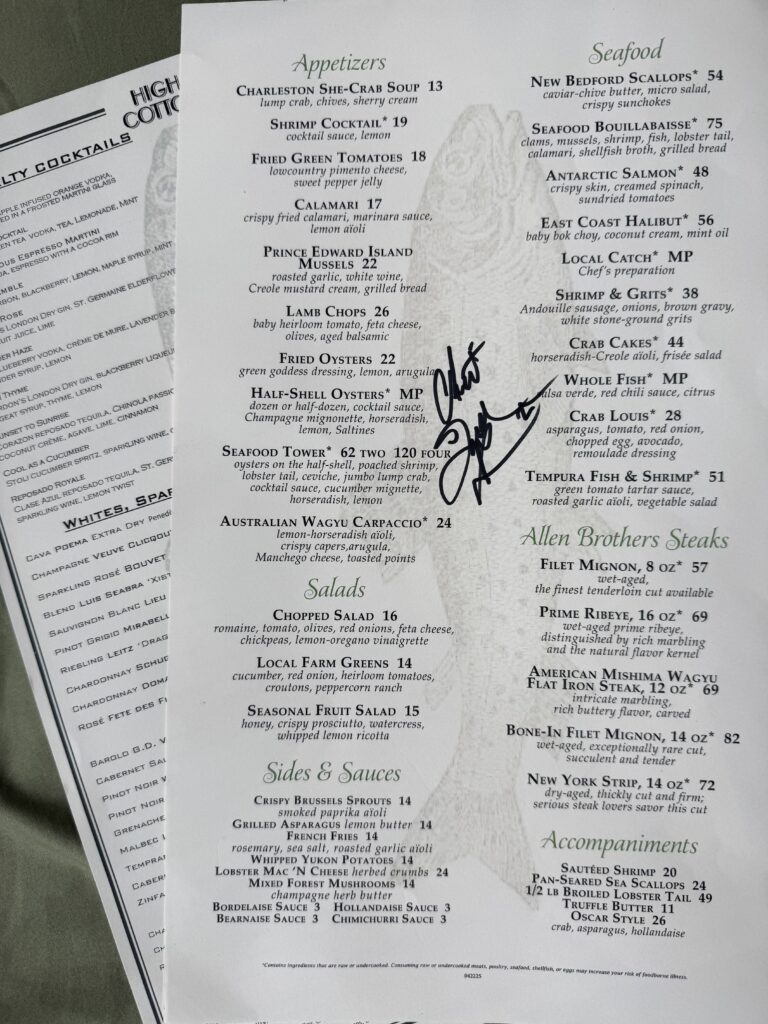 HIGH
COTTON
LTY COCKTAILS
APPLE INFUSED ORANGE VODKA,
ED IN A FROSTED MARTINI GLASS
COCKTAIL
EEN TEA VODKA, TEA, LEMONADE, MINT
OUS ESPRESSO MARTINI
A, ESPRESSO WITH A COCOA RIM
EMBLE
RBON, BLACKBERRY, LEMON, MAPLE SYRUP, MINT
ROSE
S LONDON DRY GIN, ST. GERMAINE ELDERFLOW
UIT JUICE, LIME
ER HAZE
LUEBERRY VODKA, CRÈME DE MURE, LAVENDER B
DER SYRUP, LEMON
THYME
RDON'S LONDON DRY GIN, BLACKBERRY LIQUEU
GEAT SYRUP, THYME, LEMON
UNSET TO SUNRISE
CORAZON REPOSADO TEQUILA, CHINOLA PASSION
COCONUT CRÈME, AGAVE, LIME, CINNAMON
COOL AS A CUCUMBER
STOLI CUCUMBER SPRITZ, SPARKLING WINE,
REPOSADO ROYALE
CLASE AZUL REPOSADO TEQUILA, ST. GER
SPARKLING WINE, LEMON TWIST
WHITES, SPAR
CAVA POEMA EXTRA DRY Pened
CHAMPAGNE VEUVE CLICQUO
SPARKLING ROSÉ BOUVET
BLEND LUIS SEABRA 'XIST
SAUVIGNON BLANC LIEU
PINOT GRIGIO MIRABEL
RIESLING LEITZ 'DRAG
CHARDONNAY SCHUE
CHARDONNAY DOMA
ROSÉ FETE DES F
BAROLO G.D. V
CABERNET SAU
PINOT NOIR W
PINOT NOIR
GRENACHE
MALBEC L
TEMPRAN
CABER
ZINFA
CHA
CH
Appetizers
CHARLESTON SHE-CRAB SOUP 13
lump crab, chives, sherry cream
SHRIMP COCKTAIL* 19
cocktail sauce, lemon
FRIED GREEN TOMATOES 18
lowcountry pimento cheese,
sweet pepper jelly
CALAMARI 17
crispy fried calamari, marinara sauce,
lemon aïoli
PRINCE EDWARD ISLAND
MUSSELS 22
roasted garlic, white wine,
Creole mustard cream, grilled bread
LAMB CHOPS 26
baby heirloom tomato, feta cheese,
olives, aged balsamic
FRIED OYSTERS 22
green goddess dressing, lemon, arugula
HALF-SHELL OYSTERS* MP
dozen or half-dozen, cocktail sauce,
Champagne mignonette, horseradish,
lemon, Saltines
SEAFOOD TOWER* 62 TWO 120 FOUR
oysters on the half-shell, poached shrimp,
lobster tail, ceviche, jumbo lump crab,
cocktail sauce, cucumber mignette,
horseradish, lemon
AUSTRALIAN WAGYU CARPACCIO* 24
lemon-horseradish aïoli,
crispy capers,arugula,
Manchego cheese, toasted points
Salads
CHOPPED SALAD 16
romaine, tomato, olives, red onions, feta cheese,
chickpeas, lemon-oregano vinaigrette
LOCAL FARM GREENS 14
cucumber, red onion, heirloom tomatoes,
croutons, peppercorn ranch
SEASONAL FRUIT SALAD 15
honey, crispy prosciutto, watercress,
whipped lemon ricotta
Sides & Sauces
CRISPY BRUSSELS SPROUTS 14
smoked paprika aïoli
GRILLED ASPARAGUS lemon butter 14
FRENCH FRIES 14
rosemary, sea salt, roasted garlic aïoli
WHIPPED YUKON POTATOES 14
LOBSTER MAC 'N CHEESE herbed crumbs 24
MIXED FOREST MUSHROOMS 14
champagne herb butter
BORDELAISE SAUCE 3 HOLLANDAISE SAUCE 3
BEARNAISE SAUCE 3 CHIMICHURRI SAUCE 3
Seafood
NEW BEDFORD SCALLOPS* 54
caviar-chive butter, micro salad,
crispy sunchokes
SEAFOOD BOUILLABAISSE* 75
clams, mussels, shrimp, fish, lobster tail,
calamari, shellfish broth, grilled bread
ANTARCTIC SALMON* 48
crispy skin, creamed spinach,
sundried tomatoes
EAST COAST HALIBUT* 56
baby bok choy, coconut cream, mint oil
LOCAL CATCH* MP
Chef's preparation
SHRIMP & GRITS* 38
Andouille sausage, onions, brown gravy,
white stone-ground grits
CRAB CAKES* 44
horseradish-Creole aïoli, frisée salad
WHOLE FISH* MP
salsa verde, red chili sauce, citrus
CRAB LOUIS* 28
asparagus, tomato, red onion,
chopped egg, avocado,
remoulade dressing
TEMPURA FISH & SHRIMP* 51
green tomato tartar sauce,
roasted garlic aïoli, vegetable salad
Allen Brothers Steaks
FILET MIGNON, 8 OZ* 57
wet-aged,
the finest tenderloin cut available
PRIME RIBEYE, 16 OZ* 69
wet-aged prime ribeye,
distinguished by rich marbling
and the natural flavor kernel
AMERICAN MISHIMA WAGYU
FLAT IRON STEAK, 12 OZ* 69
intricate marbling,
rich buttery flavor, carved
BONE-IN FILET MIGNON, 14 OZ* 82
wet-aged, exceptionally rare cut,
succulent and tender
NEW YORK STRIP, 14 OZ* 72
dry-aged, thickly cut and firm;
serious steak lovers savor this cut
Accompaniments
SAUTÉED SHRIMP 20
PAN-SEARED SEA SCALLOPS 24
1/2 LB BROILED LOBSTER TAIL 49
TRUFFLE BUTTER 11
OSCAR STYLE 26
crab, asparagus, hollandaise
*Contains ingredients that are raw or undercooked. Consuming raw or undercooked meats, poultry, seafood, shellfish, or eggs may increase your risk of foodborne illness.
042225